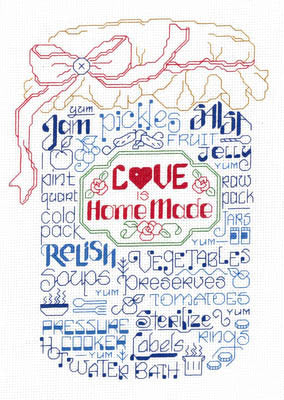 yum
Jam pickles SALSA
FRUIT
YUM JELLY
pint
quart
LOVE
IS
HomeMade
raw
pack
cold
pack
JARS
YUM
RELISH VEGETABLES
YUM
Soups Preserves
TOMATOES
Sterilize YUM
PRESSURE
COOKER Labels rings
YUM
HOT WATER BATH